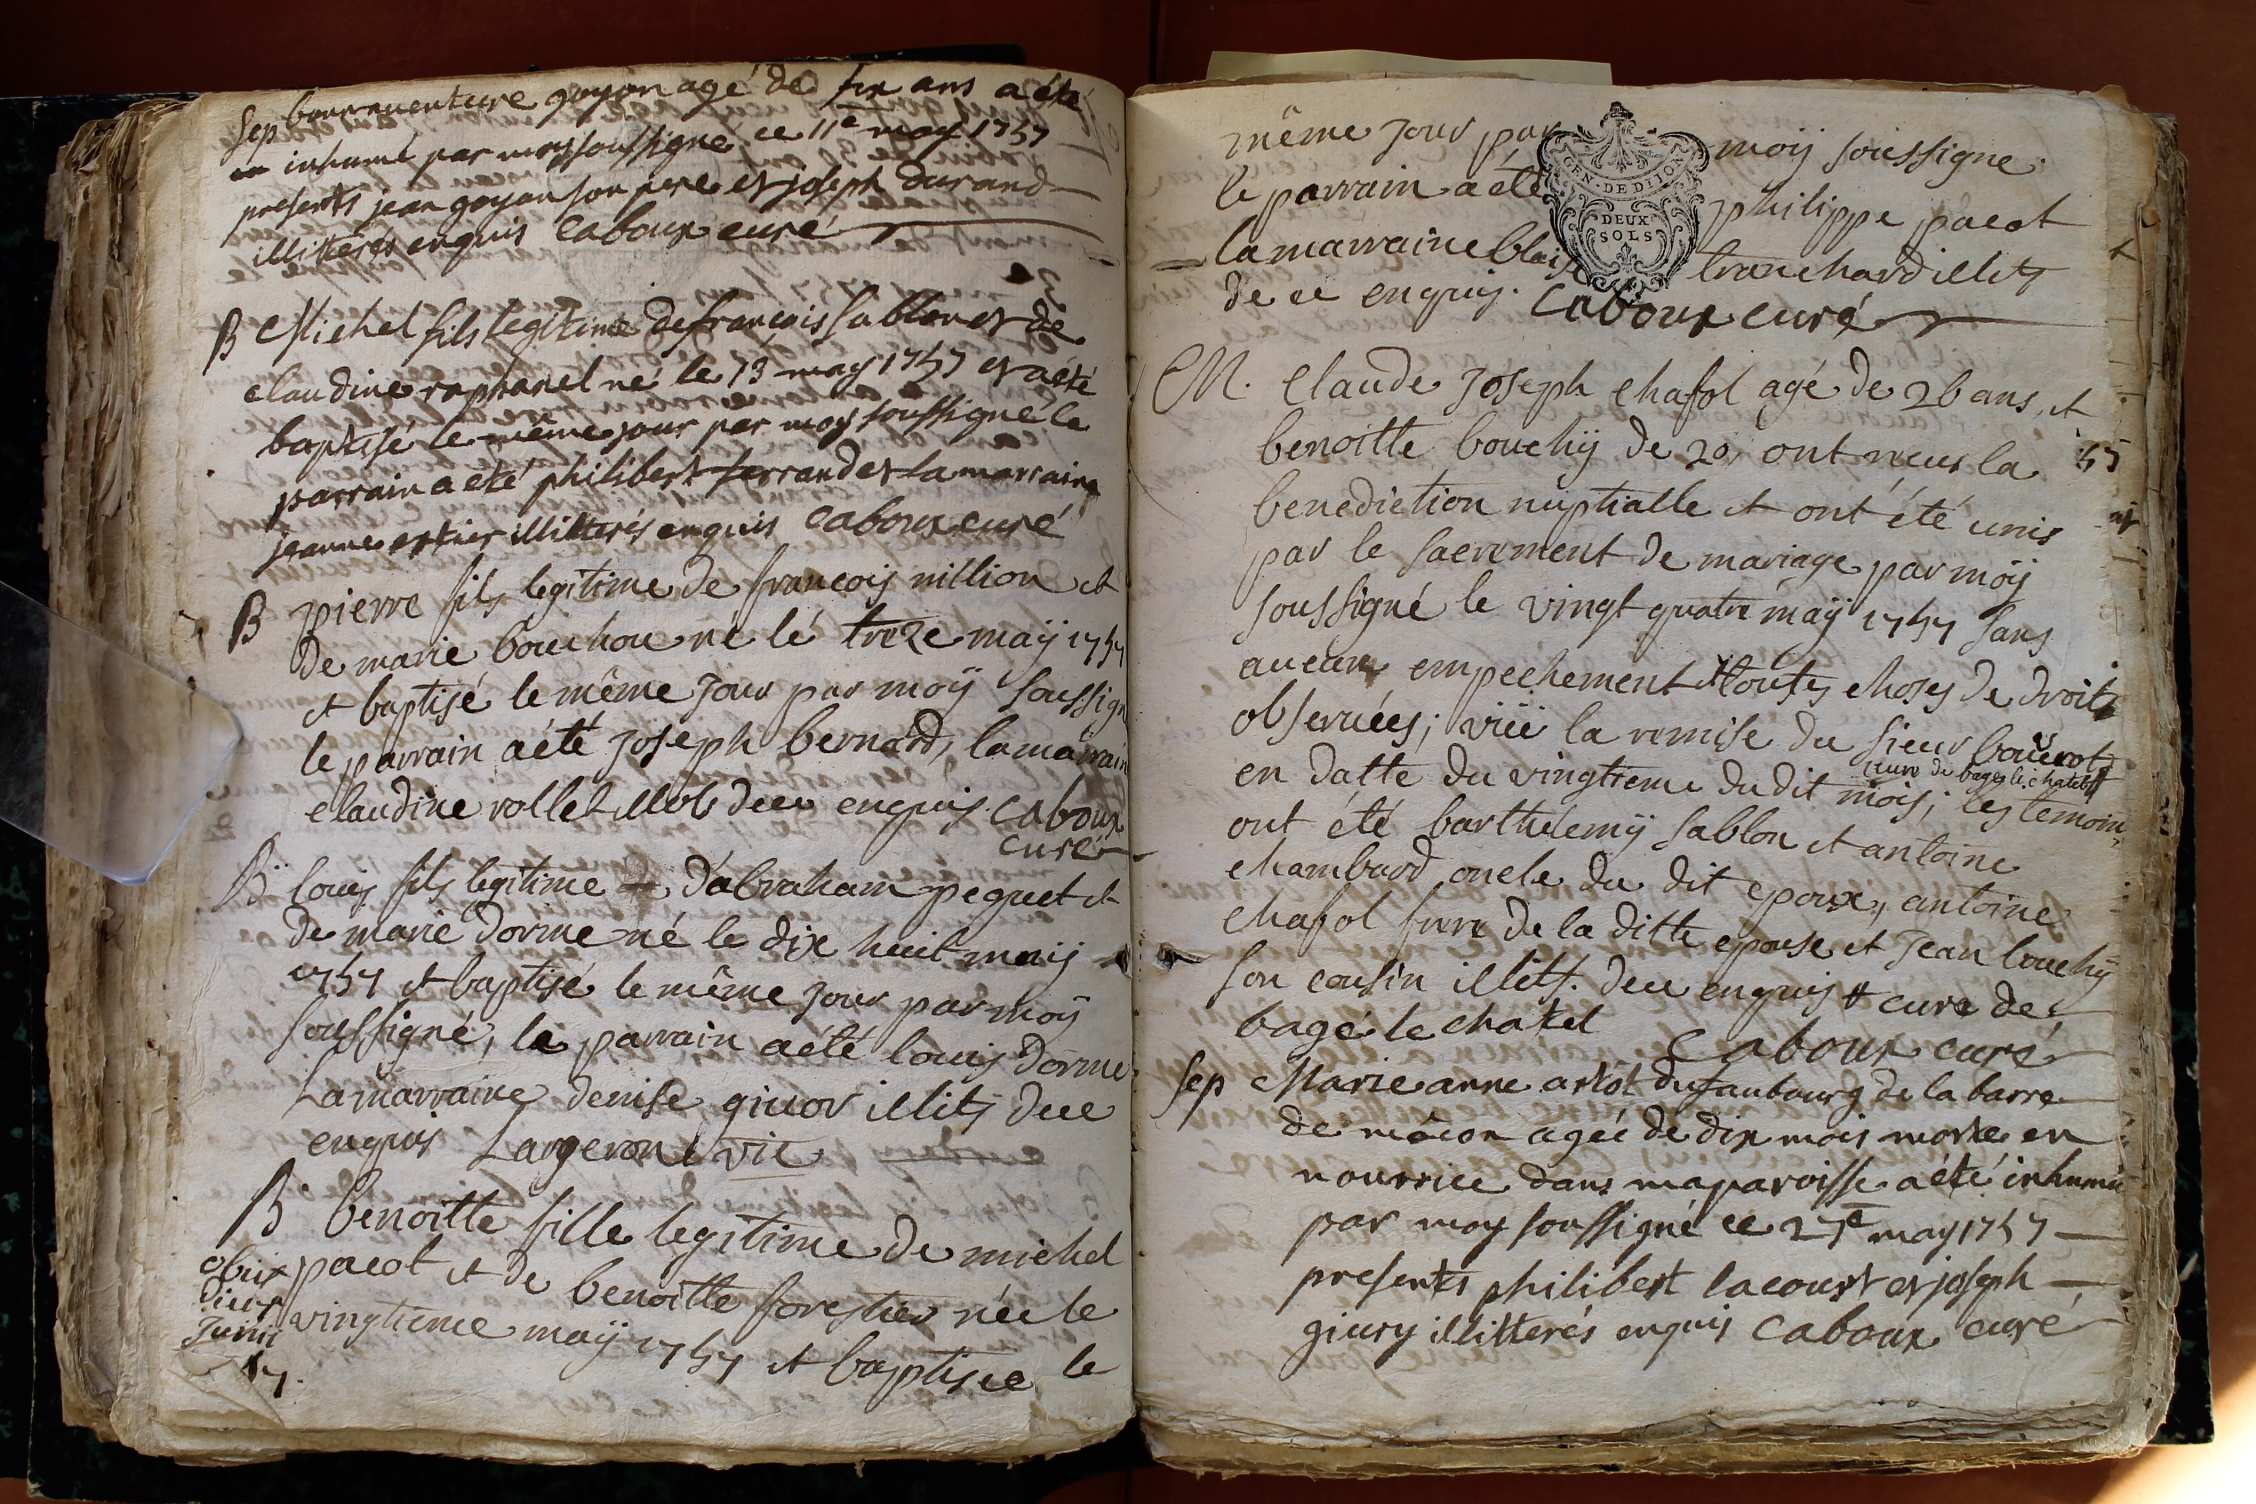 Sep bonnauenture goyon agé de six ans a été
inhumé par moy soussigné ce 11e may 1757
presents jean goyon son pere et joseph durand
illitterés enquis Caboux curé
B Michel fils legitime de françois sablon et de
claudine raphanel né le 13 may 1757 et a été
baptisé le même jour par moy soussigné le
parrain a eté philibert ferrand et la marraine
jeanne illitterés enquis Caboux curé
B pierre fils legitime de françois million et
de marie bouchou né le treze maÿ 1757
et baptisé le même jour par moÿ soussigné
le parrain a été joseph bernard, la marraine
claudine rollet de ce enquis. Caboux
curé
B louis fils legitime d'abraham pequet et
de marie dorme né le dix huit maij
1757 et baptisé le même jour par moÿ
soussigné, le parrain a été louis dorme
La marraine denise givor illits de ce
enquis Largeron vic
B benoitte fille legitime de michel
obiit pacot et de benoitte forestier née le
Junii vingtieme maÿ 1757 et baptisee le
57.
même jour par moij soussigné.
le parrain a été philippe pacot
la marraine blaise tranchard illits
de ce enquis. Caboux curé
GEN. DE DIJON
DEUX
SOLS
M. Claude Joseph chafol agé de 26 ans, et
benoitte bouchÿ de 20, ont reçus la
benediction nuptialle et ont été unis
par le sacrement de mariage par moÿ
soussigné le vingt quatre maÿ 1757 sans
aucun empechement et toutes choses de droit
observées; vüë la remise du sieur
curé de bagé le chatel
en datte du vingtieme du dit mois; les temoins
ont été barthelemÿ sablon et antoine
chambard oncle du dit epoux, antoine
chafol frere de la ditte epouse et Jean bouchÿ
son cousin illits. de ce enquis # curé de
bagé le chatel Caboux curé
Sep Marie anne artôt du faubourg de la barre
de mâcon agée de dix mois morte en
nourrice dans ma paroisse a été inhumée
par moy soussigné ce 27e may 1757
presents philibert lacourt et joseph
giury illitterés enquis Caboux curé